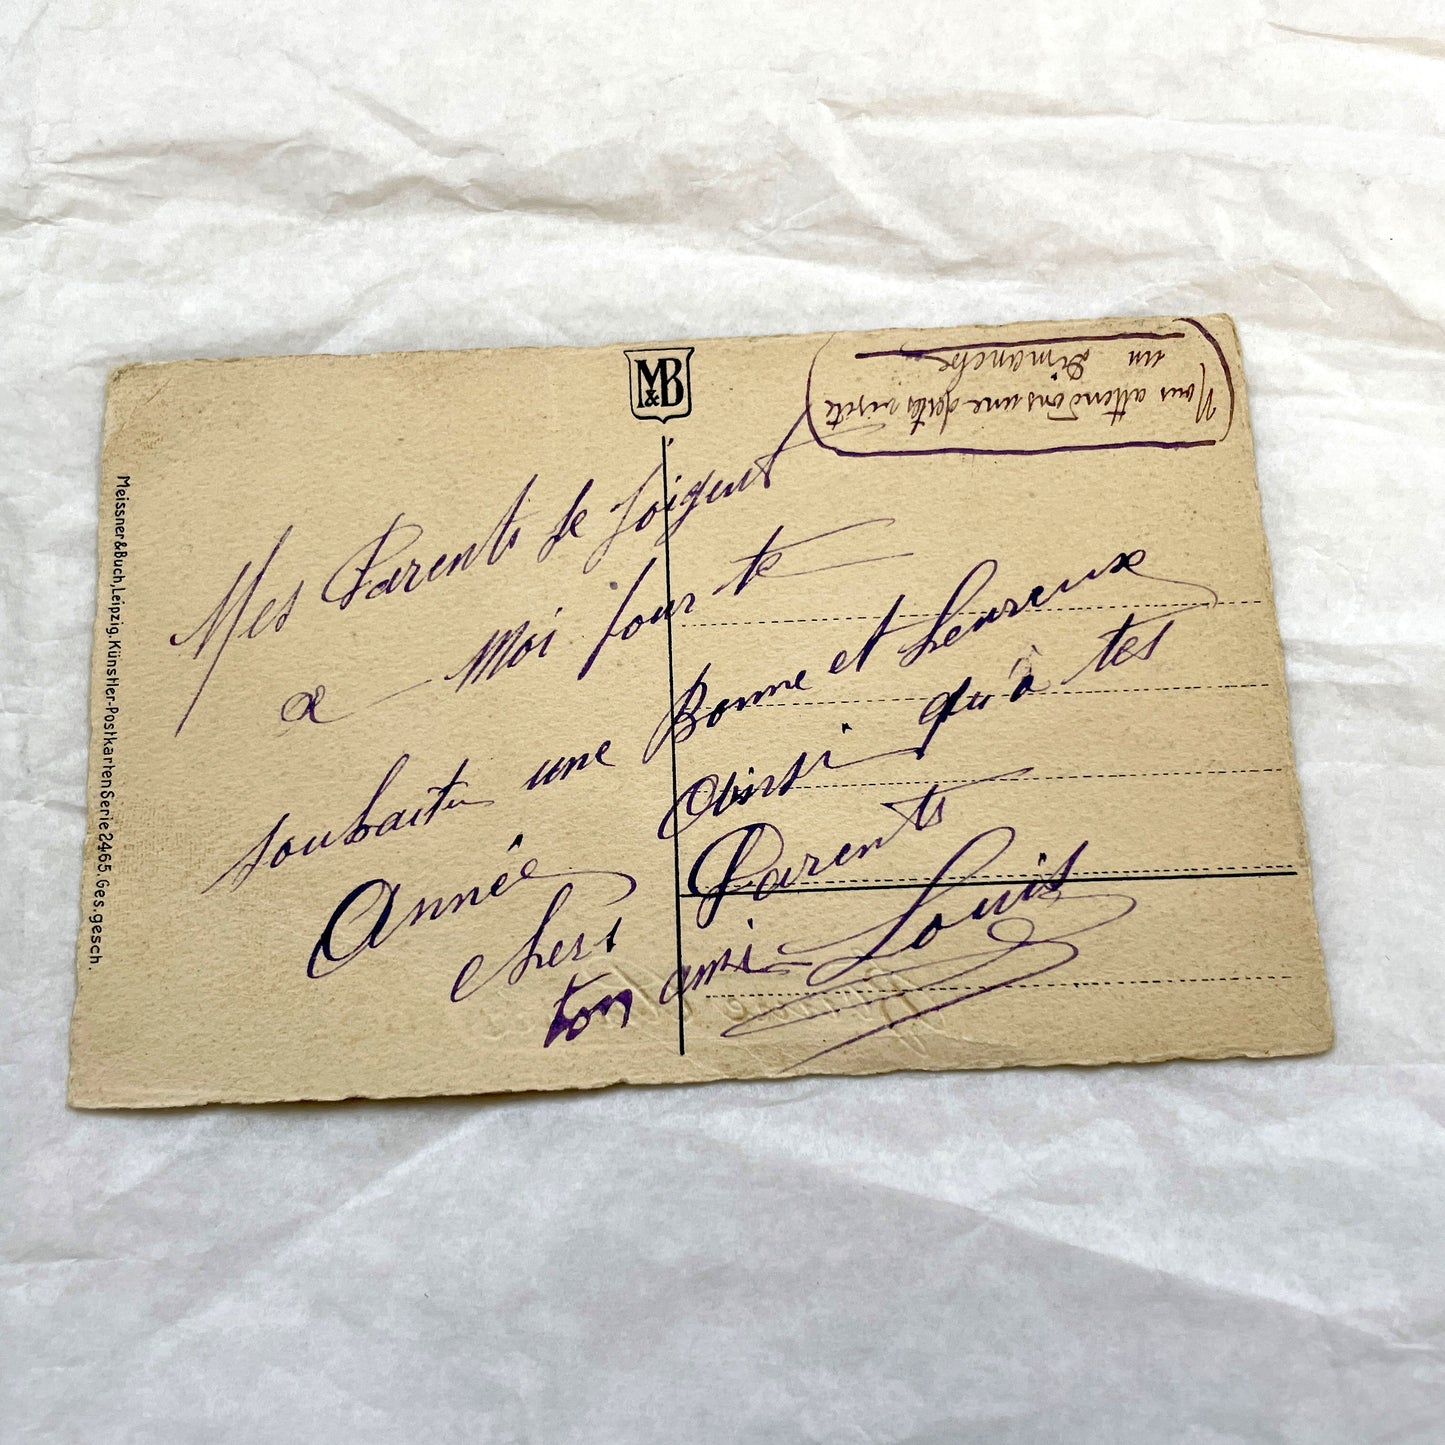 M&B
Nous attendons une de tes visite
un Dimanche
Mes Parents se Joigent
a moi pour te
souhaiter une Bonne et heureuse
Année Ainsi qu'à tes
chers Parents
ton ami Louis
Meissner&Buch,Leipzig.Künstler-PostkartenSerie2465.Ges.gesch.